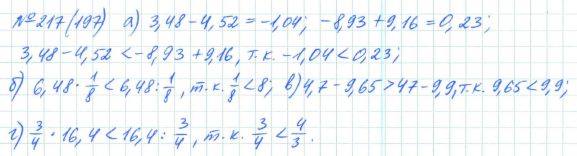 №217(197) а) 3,48-4,52=-1,04; -8,93+9,16=0,23;
3,48-4,52<-8,93+9,16, т.к. -1,04<0,23;
б) 6,48·1/8<6,48:1/8, т.к. 1/8<8; в) 4,7-9,65>47-9,9, т.к. 9,65<9,9;
г) 3/4·16,4<16,4:3/4, т.к. 3/4<4/3.